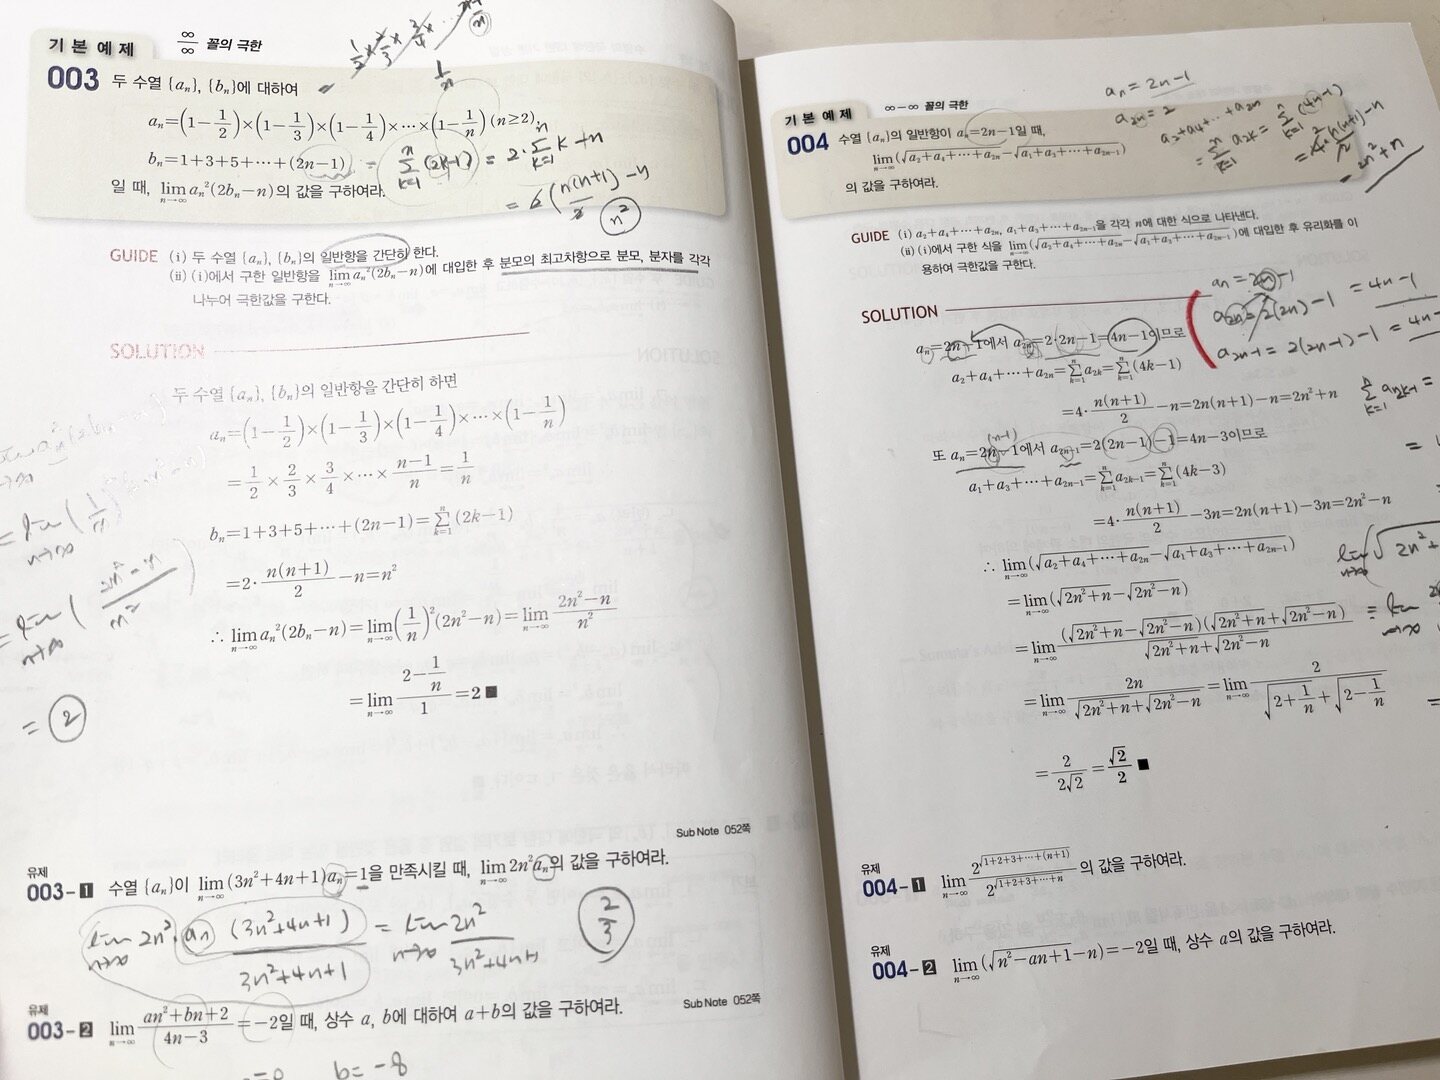 기본 예제 ∞/∞ 꼴의 극한
003 두 수열 {aₙ}, {bₙ}에 대하여
aₙ=(1-1/2)×(1-1/3)×(1-1/4)×⋯×(1-1/n) (n≥2),
bₙ=1+3+5+⋯+(2n-1) = Σₖ₌₁ⁿ(2k-1) = 2·Σₖ₌₁ⁿ k + n
일 때, lim_{n→∞} aₙ²(2bₙ-n)의 값을 구하여라.
n²
GUIDE (i) 두 수열 {aₙ}, {bₙ}의 일반항을 간단히 한다.
(ii) (i)에서 구한 일반항을 lim_{n→∞} aₙ²(2bₙ-n)에 대입한 후 분모의 최고차항으로 분모, 분자를 각각
나누어 극한값을 구한다.
SOLUTION
두 수열 {aₙ}, {bₙ}의 일반항을 간단히 하면
aₙ=(1-1/2)×(1-1/3)×(1-1/4)×⋯×(1-1/n)
=1/2×2/3×3/4×⋯×(n-1)/n=1/n
bₙ=1+3+5+⋯+(2n-1)=Σₖ₌₁ⁿ(2k-1)
=2·n(n+1)/2-n=n²
∴ lim_{n→∞} aₙ²(2bₙ-n)=lim_{n→∞}(1/n)²(2n²-n)=lim_{n→∞}(2n²-n)/n²
=lim_{n→∞}(2-1/n)/1=2 ■
= 2
Sub Note 052쪽
유제
003-1 수열 {aₙ}이 lim_{n→∞}(3n²+4n+1)aₙ=1을 만족시킬 때, lim_{n→∞}2n²aₙ의 값을 구하여라.
lim_{n→∞} 2n²·aₙ (3n²+4n+1)/(3n²+4n+1) = lim_{n→∞} 2n²/(3n²+4n+1) 2/3
Sub Note 052쪽
유제
003-2 lim_{n→∞}(an²+bn+2)/(4n-3)=-2일 때, 상수 a, b에 대하여 a+b의 값을 구하여라.
b=-8
기본 예제 ∞-∞ 꼴의 극한
aₙ=2n-1
004 수열 {aₙ}의 일반항이 aₙ=2n-1일 때,
lim_{n→∞}(√(a₂+a₄+⋯+a₂ₙ)-√(a₁+a₃+⋯+a₂ₙ₋₁))
의 값을 구하여라.
a₂+a₄+⋯+a₂ₙ
=Σₖ₌₁ⁿ a₂ₖ = Σₖ₌₁ⁿ(4k-1)
2n²+n
GUIDE (i) a₂+a₄+⋯+a₂ₙ, a₁+a₃+⋯+a₂ₙ₋₁을 각각 n에 대한 식으로 나타낸다.
(ii) (i)에서 구한 식을 lim_{n→∞}(√(a₂+a₄+⋯+a₂ₙ)-√(a₁+a₃+⋯+a₂ₙ₋₁))에 대입한 후 유리화를 이
용하여 극한값을 구한다.
SOLUTION
aₙ=2n-1
a₂ₙ=2(2n)-1 = 4n-1
a₂ₙ₋₁ = 2(2n-1)-1 = 4n-
aₙ=2n-1에서 a₂ₙ=2·2n-1=4n-1이므로
a₂+a₄+⋯+a₂ₙ=Σₖ₌₁ⁿa₂ₖ=Σₖ₌₁ⁿ(4k-1)
=4·n(n+1)/2-n=2n(n+1)-n=2n²+n
(n-1)
또 aₙ=2n-1에서 a₂ₙ₋₁=2(2n-1)-1=4n-3이므로
a₁+a₃+⋯+a₂ₙ₋₁=Σₖ₌₁ⁿa₂ₖ₋₁=Σₖ₌₁ⁿ(4k-3)
=4·n(n+1)/2-3n=2n(n+1)-3n=2n²-n
∴ lim_{n→∞}(√(a₂+a₄+⋯+a₂ₙ)-√(a₁+a₃+⋯+a₂ₙ₋₁))
=lim_{n→∞}(√(2n²+n)-√(2n²-n))
=lim_{n→∞}(√(2n²+n)-√(2n²-n))(√(2n²+n)+√(2n²-n))/(√(2n²+n)+√(2n²-n))
=lim_{n→∞}2n/(√(2n²+n)+√(2n²-n))=lim_{n→∞}2/(√(2+1/n)+√(2-1/n))
=2/(2√2)=√2/2 ■
유제
004-1 lim_{n→∞}2^√(1+2+3+⋯+(n+1))/2^√(1+2+3+⋯+n)의 값을 구하여라.
유제
004-2 lim_{n→∞}(√(n²-an+1)-n)=-2일 때, 상수 a의 값을 구하여라.